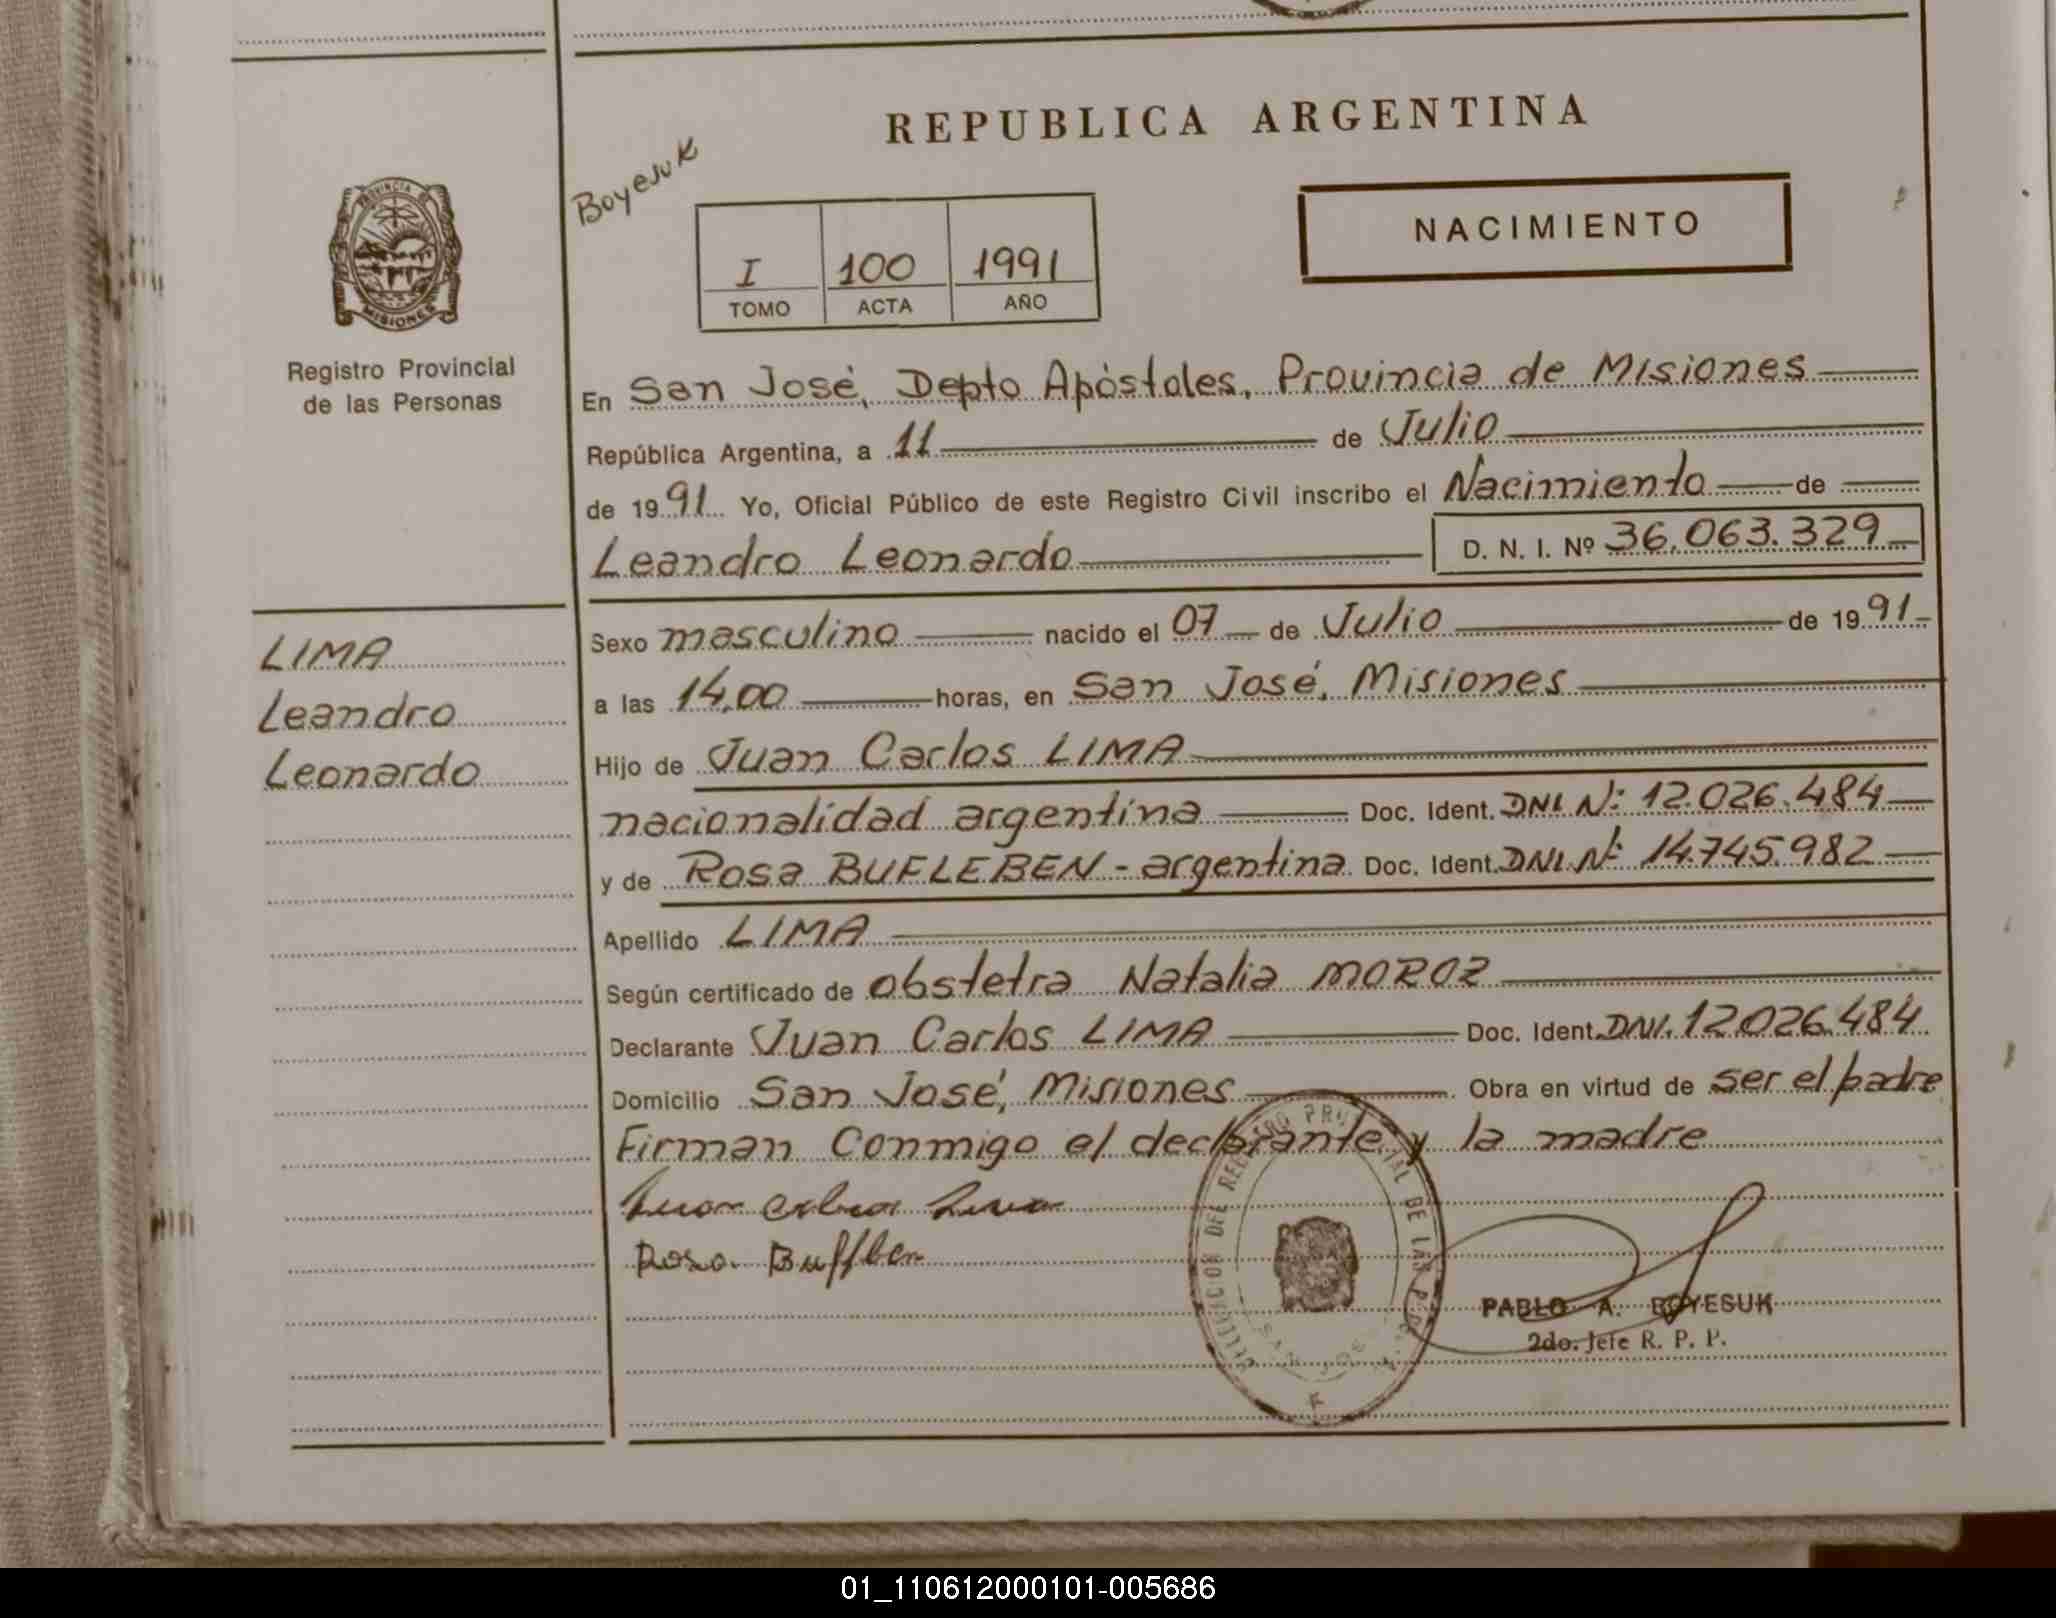 REPUBLICA ARGENTINA
Boyesuk
NACIMIENTO
I 100 1991
TOMO ACTA AÑO
PROVINCIA DE
MISIONES
Registro Provincial
de las Personas
En San José, Depto Apóstoles, Provincia de Misiones
República Argentina, a 11 de Julio
de 1991 Yo, Oficial Público de este Registro Civil inscribo el Nacimiento de
Leandro Leonardo D. N. I. Nº 36.063.329
LIMA
Leandro
Leonardo
Sexo masculino nacido el 07 de Julio de 1991
a las 14,00 horas, en San José, Misiones
Hijo de Juan Carlos LIMA
nacionalidad argentina Doc. Ident. DNI Nº: 12.026.484
y de Rosa BUFLEBEN - argentina Doc. Ident. DNI. Nº: 14.745.982
Apellido LIMA
Según certificado de obstetra Natalia MOROZ
Declarante Juan Carlos LIMA Doc. Ident. DNI. 12.026.484
Domicilio San José, Misiones Obra en virtud de ser el padre
Firman Conmigo el declarante y la madre
Rosa Buffben
DELEGACION DEL REGISTRO PROVINCIAL DE LAS P.
SAN JOSE
PABLO A. BOYESUK
2do. Jefe R. P. P.
01_110612000101-005686